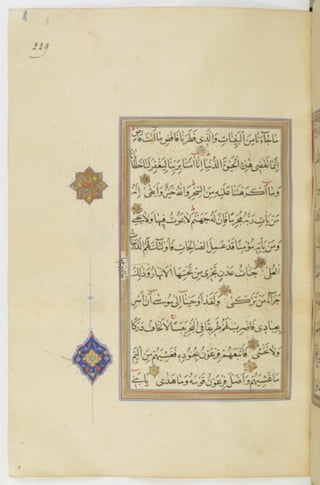 229
مَا جَاءَنَا مِنَ الْبَيِّنَاتِ وَالَّذِي فَطَرَنَا فَاقْضِ مَا أَنْتَ قَاضٍ
إِنَّمَا تَقْضِي هَذِهِ الْحَيَوةَ الدُّنْيَا إِنَّا آمَنَّا بِرَبِّنَا لِيَغْفِرَ لَنَا خَطَايَانَا
وَمَا أَكْرَهْتَنَا عَلَيْهِ مِنَ السِّحْرِ وَاللَّهُ خَيْرٌ وَأَبْقَى إِنَّهُ
مَنْ يَأْتِ رَبَّهُ مُجْرِمًا فَإِنَّ لَهُ جَهَنَّمَ لَا يَمُوتُ فِيهَا وَلَا يَحْيَى
وَمَنْ يَأْتِهِ مُؤْمِنًا قَدْ عَمِلَ الصَّالِحَاتِ فَأُولَئِكَ لَهُمُ الدَّرَجَاتُ
الْعُلَى جَنَّاتُ عَدْنٍ تَجْرِي مِنْ تَحْتِهَا الْأَنْهَارُ وَذَلِكَ
جَزَاءُ مَنْ تَزَكَّى وَلَقَدْ أَوْحَيْنَا إِلَى مُوسَى أَنْ أَسْرِ
بِعِبَادِي فَاضْرِبْ لَهُمْ طَرِيقًا فِي الْبَحْرِ يَبَسًا لَا تَخَافُ دَرَكًا
وَلَا تَخْشَى فَأَتْبَعَهُمْ فِرْعَوْنُ بِجُنُودِهِ فَغَشِيَهُمْ مِنَ الْيَمِّ
مَا غَشِيَهُمْ وَأَضَلَّ فِرْعَوْنُ قَوْمَهُ وَمَا هَدَى يَا بَنِي